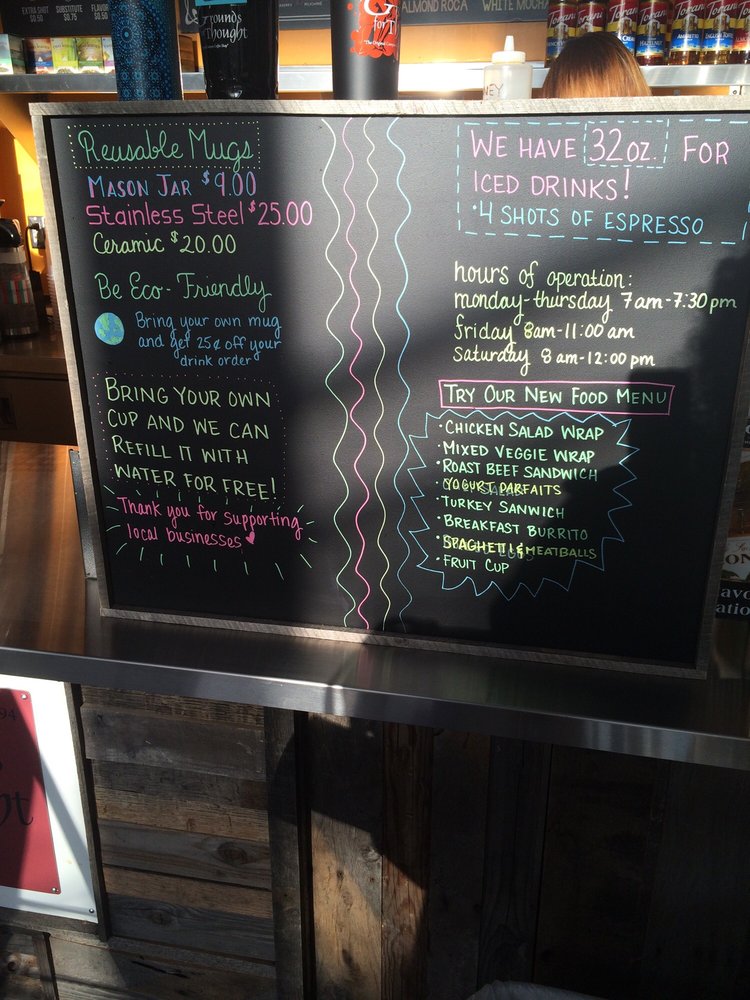 EXTRA SHOT
$0.50
SUBSTITUTE
$0.75
FLAVOR
$0.50
Grounds
Thought
for T
ALMOND ROCA
WHITE MOCHA
Torani
Torani
Torani
Torani
Torani
Torani
Reusable Mugs
MASON JAR $9.00
Stainless Steel $25.00
CERAMIC $20.00
Be Eco-Friendly
Bring your own mug
and get 25¢ off your
drink order
BRING YOUR OWN
CUP AND WE CAN
REFILL IT WITH
WATER FOR FREE!
Thank you for supporting
local businesses
WE HAVE 32oz. FOR
ICED DRINKS!
•4 SHOTS OF ESPRESSO
hours of operation:
monday-thursday 7am-7:30pm
friday 8am-11:00 am
saturday 8 am-12:00 pm
TRY OUR NEW FOOD MENU
•CHICKEN SALAD WRAP
•MIXED VEGGIE WRAP
•ROAST BEEF SANDWICH
•YOGURT PARFAITS
•TURKEY SANWICH
•BREAKFAST BURRITO
•SPAGHETTI & MEATBALLS
•FRUIT CUP